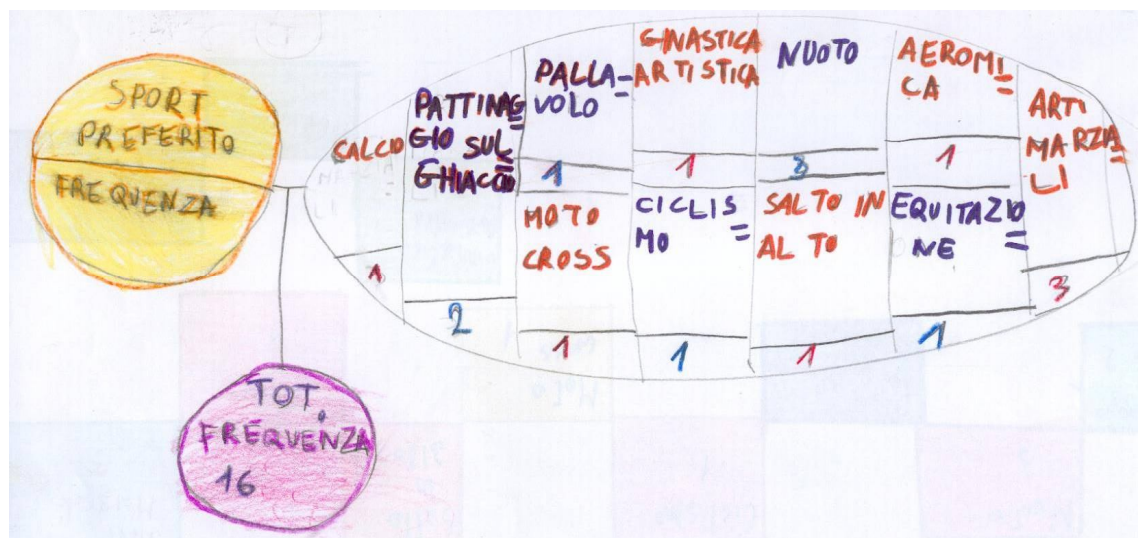 SPORT
PREFERITO
FREQUENZA
TOT.
FREQUENZA
16
CALCIO
1
PATTINAG=
GIO SUL
GHIACCIO
2
PALLA=
VOLO
1
MOTO
CROSS
1
GINASTICA
ARTISTICA
1
CICLIS=
MO
1
NUOTO
3
SALTO IN
ALTO
1
AEROMI=
CA
1
EQUITAZIO=
NE
1
ARTI
MARZIA=
LI
3